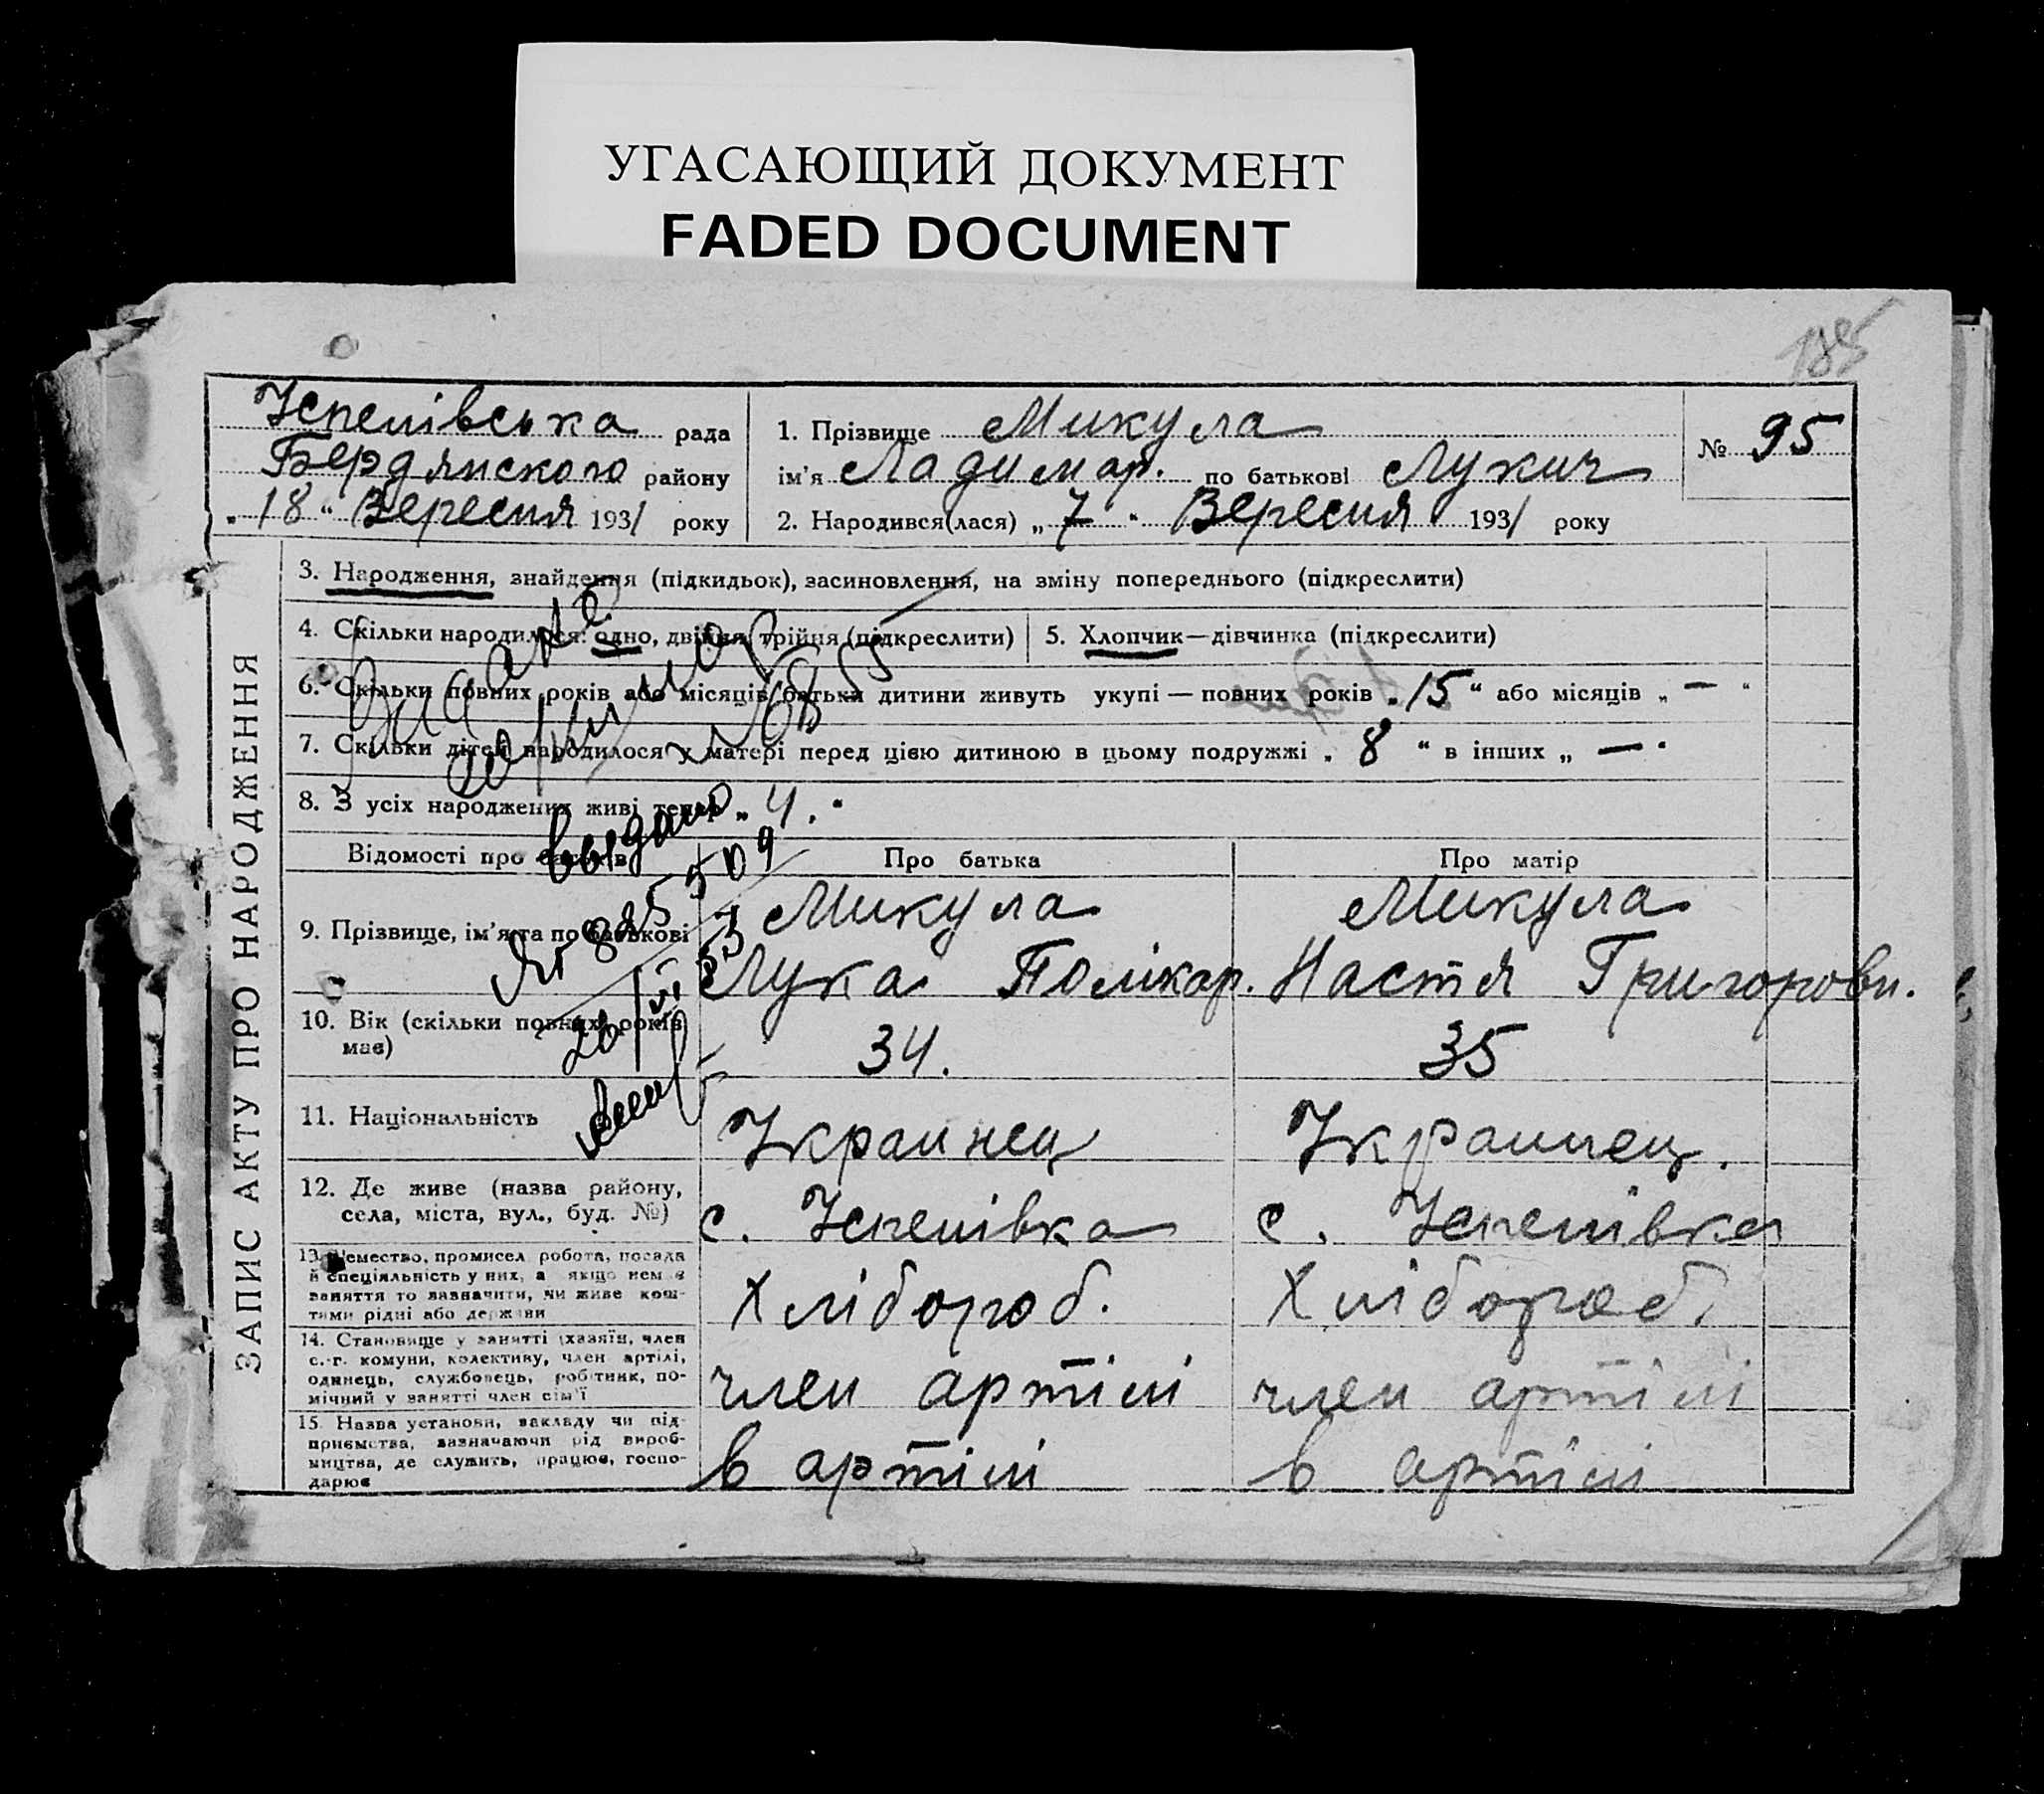 УГАСАЮЩИЙ ДОКУМЕНТ
FADED DOCUMENT
Успенівська рада
Бердянского району
„ 18 “ Вересня 1931 року
1. Прізвище Микула
ім'я Ладимар. по батькові Лукич
2. Народився(лася) „ 7 “ Вересня 1931 року
№ 95
ЗАПИС АКТУ ПРО НАРОДЖЕННЯ
3. Народження, знайдення (підкидьок), засиновлення, на зміну попереднього (підкреслити)
4. Скільки народилося: одно, двійня, трійня (підкреслити)
5. Хлопчик—дівчинка (підкреслити)
6. Скільки повних років або місяців батьки дитини живуть укупі — повних років „ 15 “ або місяців „ — “
7. Скільки дітей народилося у матері перед цією дитиною в цьому подружжі „ 8 “ в інших „ — “
8. З усіх народжених живі тепер „ 4. “
выдано
Відомості про батьків
Про батька
Про матір
9. Прізвище, ім'я та по батькові
Микула
Лука Полікар.
Микула
Настя Григоровн.
10. Вік (скільки повних років має)
34.
35
11. Національність
Украинец
Украинец.
12. Де живе (назва району,
села, міста, вул., буд. №)
с. Успенівка
с. Успенівка
13. Ремество, промисел робота, посада
й спеціяльність у них, а якщо нема
заняття то зазначити, чи живе кош-
тами рідні або держави
Хлібороб.
Хлібороб.
14. Становище у занятті (хазяїн, член
с.-г. комуни, колективу, член артілі,
одинець, службовець, робітник, по-
мічний у занятті член сім'ї
член артілі
член артілі
15. Назва установи, закладу чи під-
приємства, зазначаючи рід вироб-
ництва, де служить, працює, госпо-
дарює
в артілі
в артілі